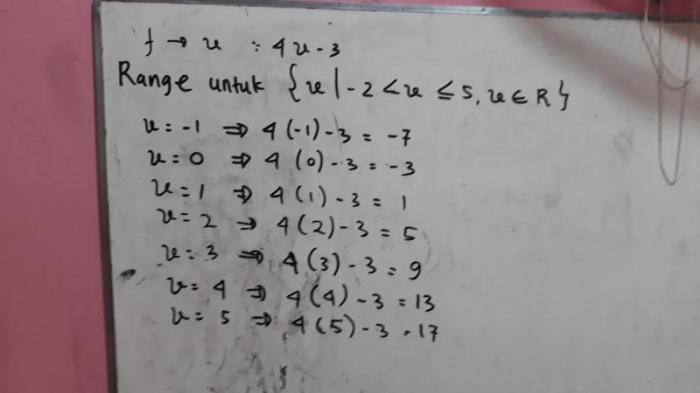 f → x : 4x - 3
Range untuk {x | -2 < x ≤ 5, x ∈ R}
x = -1 ⇒ 4(-1) - 3 = -7
x = 0 ⇒ 4(0) - 3 = -3
x = 1 ⇒ 4(1) - 3 = 1
x = 2 ⇒ 4(2) - 3 = 5
x = 3 ⇒ 4(3) - 3 = 9
x = 4 ⇒ 4(4) - 3 = 13
x = 5 ⇒ 4(5) - 3 = 17